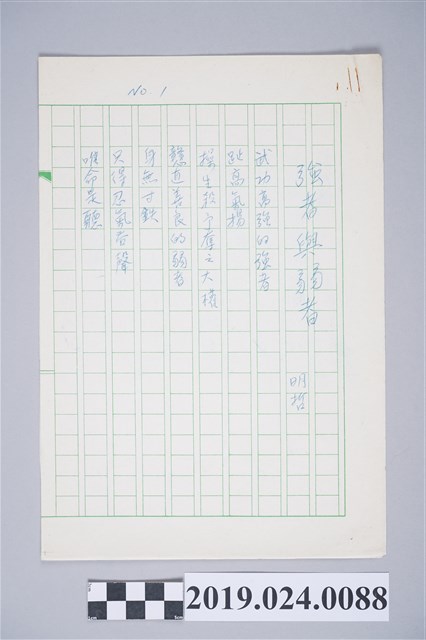 No. 1
強者與弱者
明哲
武功高強的強者
趾高氣揚
操生殺予奪之大權
懿道善良的弱者
身無寸鉄
只得忍氣吞聲
唯命是聽
2019.024.0088